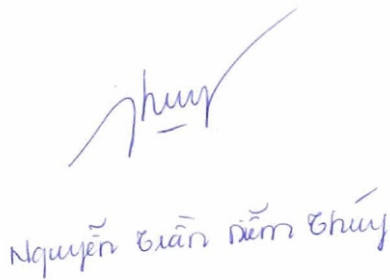 Thuý
Nguyễn Trần Diễm Thúy